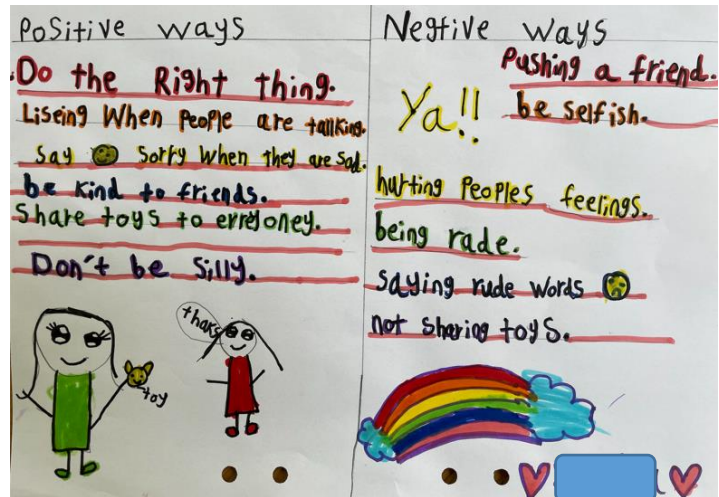 Positive ways
Do the Right thing.
Liseing When People are tallking.
Say Sorry When they are Sad.
be kind to friends.
Share toys to erreyoney.
Don't be Silly.
thaks
toy
Negtive ways
Pushing a friend.
Ya!!
be selfish.
hurting Peoples feelings.
being rade.
saying rude words
not sharing toys.